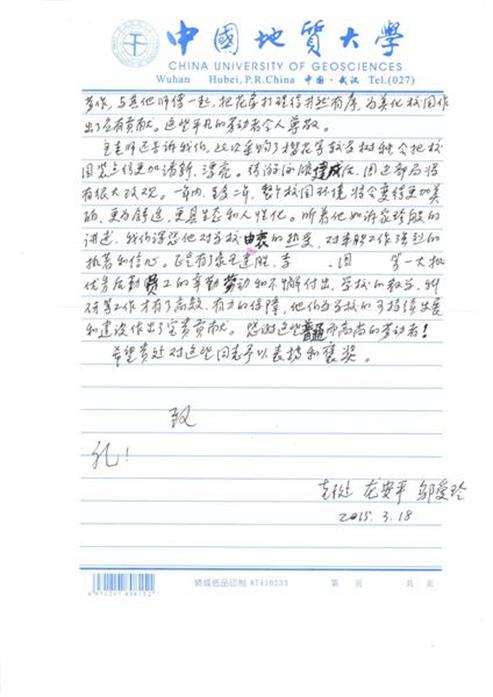 中國地質大學
CHINA UNIVERSITY OF GEOSCIENCES
Wuhan Hubei, P.R.China 中国·武汉 Tel.(027)
劳作,与其他师傅一起,把花房打理得井然有序,为美化校园作
出了应有贡献。这些平凡的劳动者令人尊敬。
老师还告诉我们,此次采购了樱花等较多树种会把校
园装点得更加清新、漂亮。待游泳池建成后,周边布局将
有很大改观。一年内,至多二年,整个校园环境将会变得更加美
丽,更为舒适,更具生态和人性化。听着他如诉家珍般的
讲述,我们深感他对学校由衷的热爱,对本职工作强烈的
执着和信心。正是有了象王建胜、李 等一大批
优秀后勤员工的辛勤劳动和不懈付出,学校的教学、科
研等工作才有了高效、有力的保障,他们为学校的可持续发展
和建设作出了宝贵贡献。感谢这些普通而高尚的劳动者!
希望贵处对这些同志予以表扬和褒奖。
致
礼!
龙安平 邹爱玲
2015.3.18
87410233 第 页 共 页